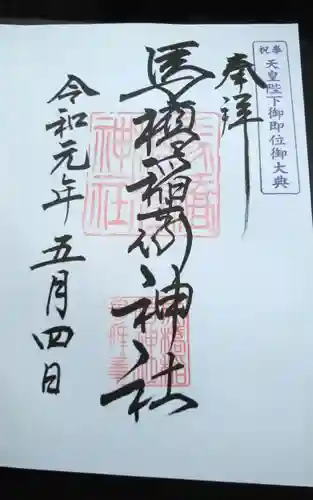 奉祝 天皇陛下御即位御大典
奉拝
馬橋稲荷神社
令和元年五月四日